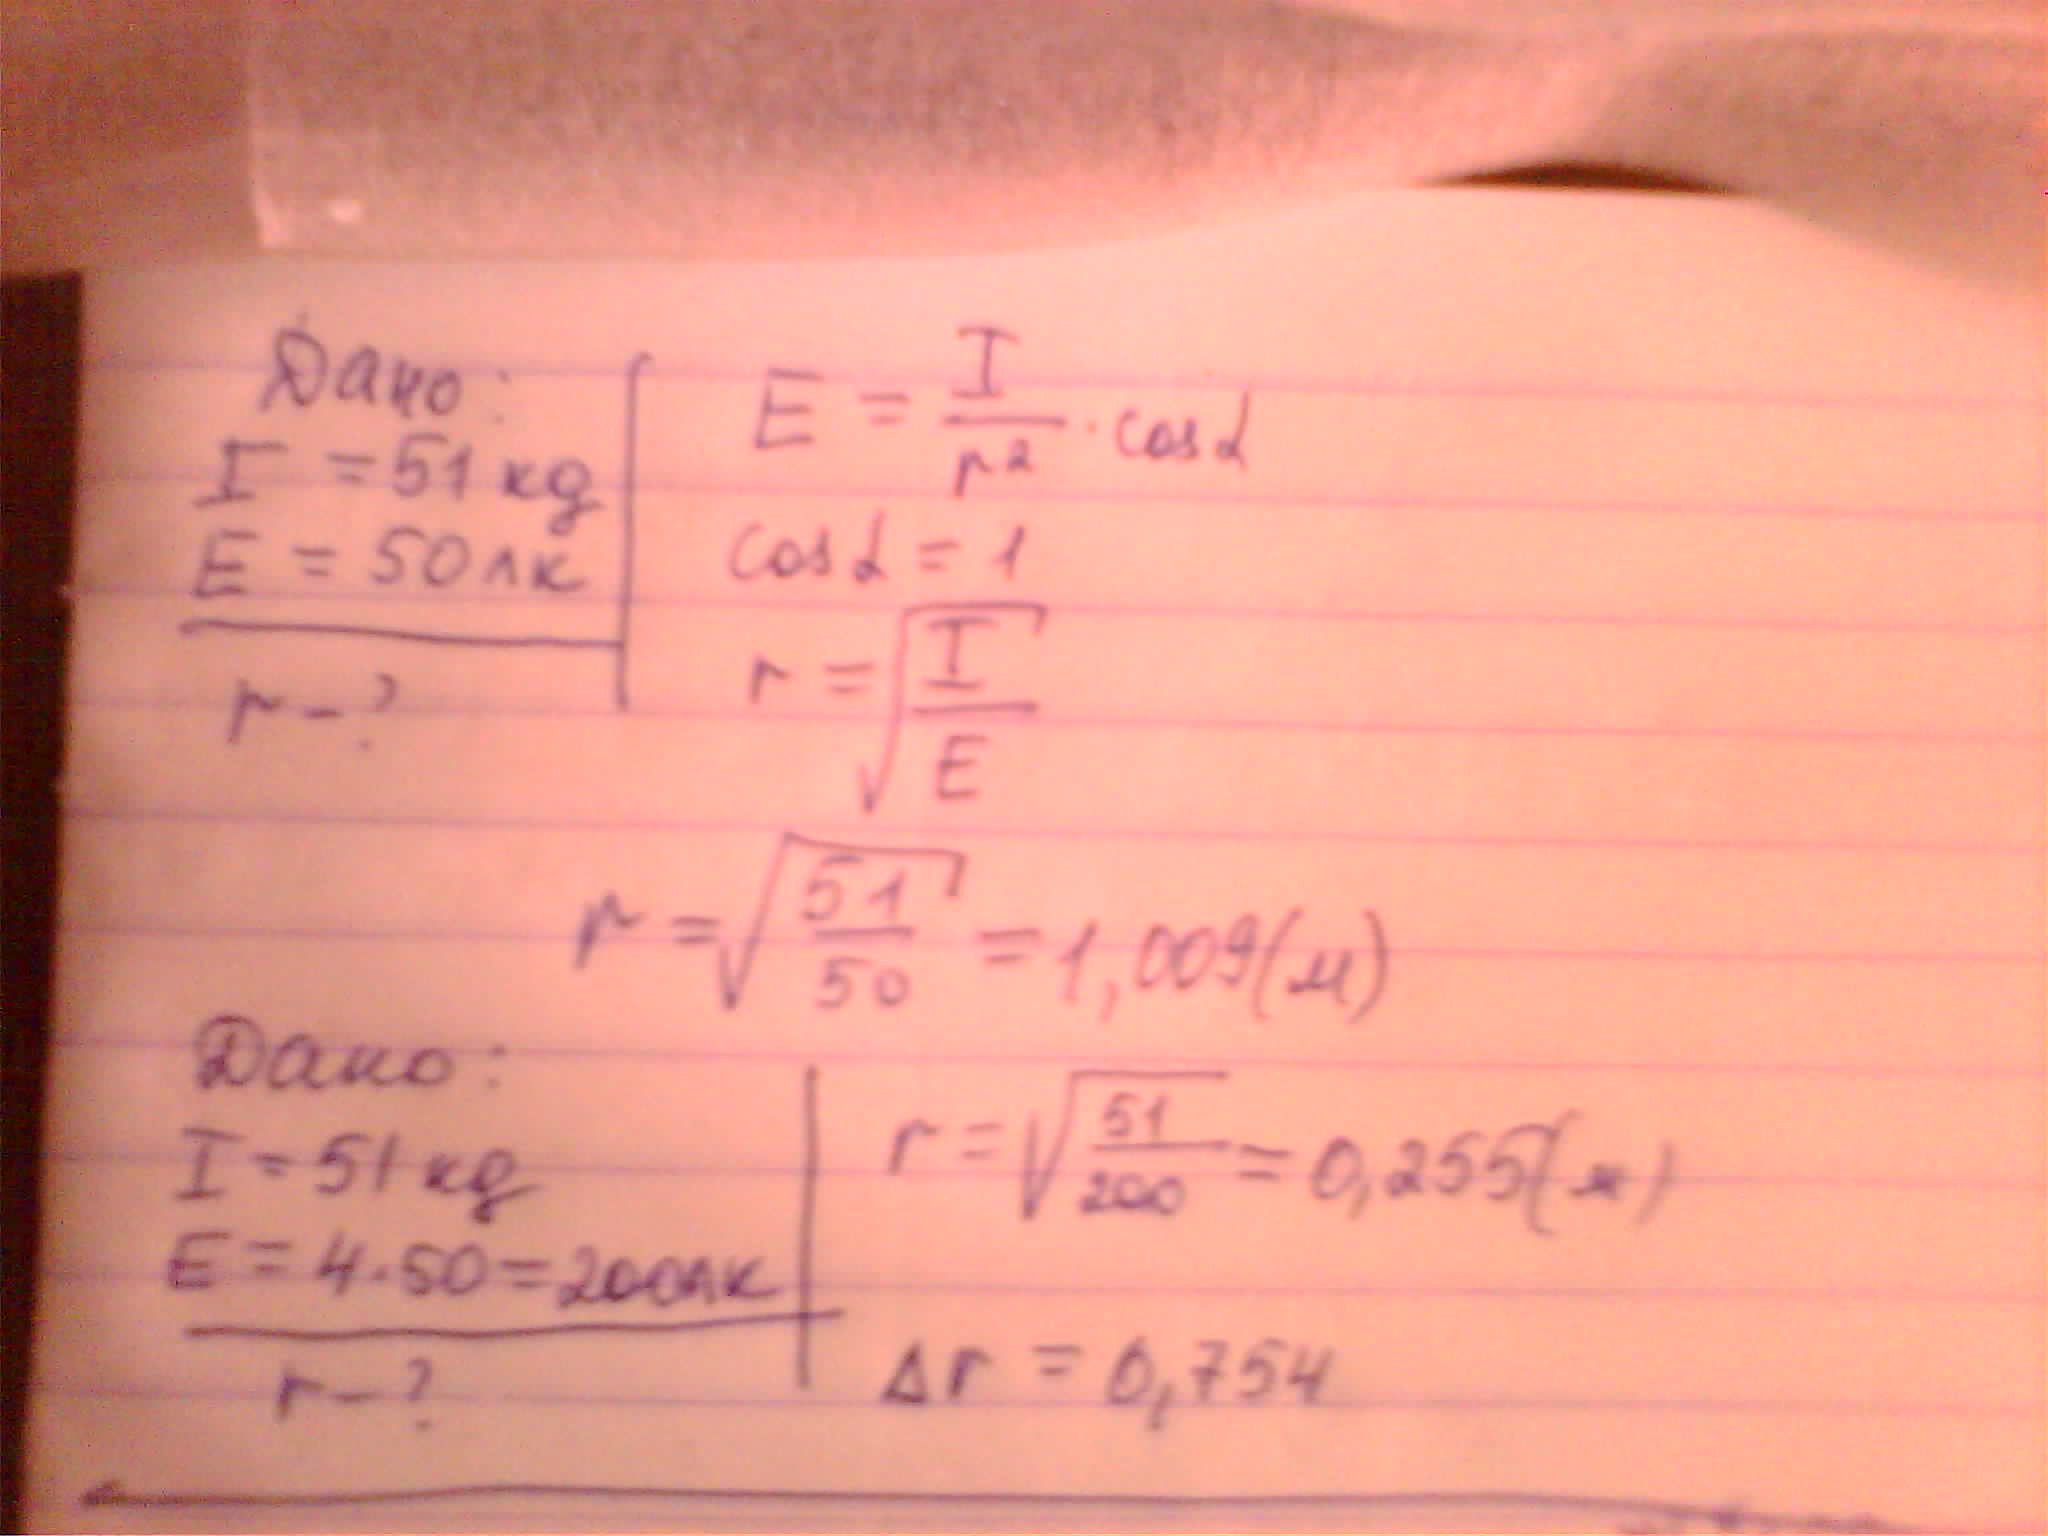 Дано:
I = 51 кд
E = 50 лк
r - ?
E = I/r² · cos α
cos α = 1
r = √(I/E)
r = √(51/50) = 1,009 (м)
Дано:
I = 51 кд
E = 4·50 = 200 лк
r - ?
r = √(51/200) = 0,255 (м)
Δr = 0,754